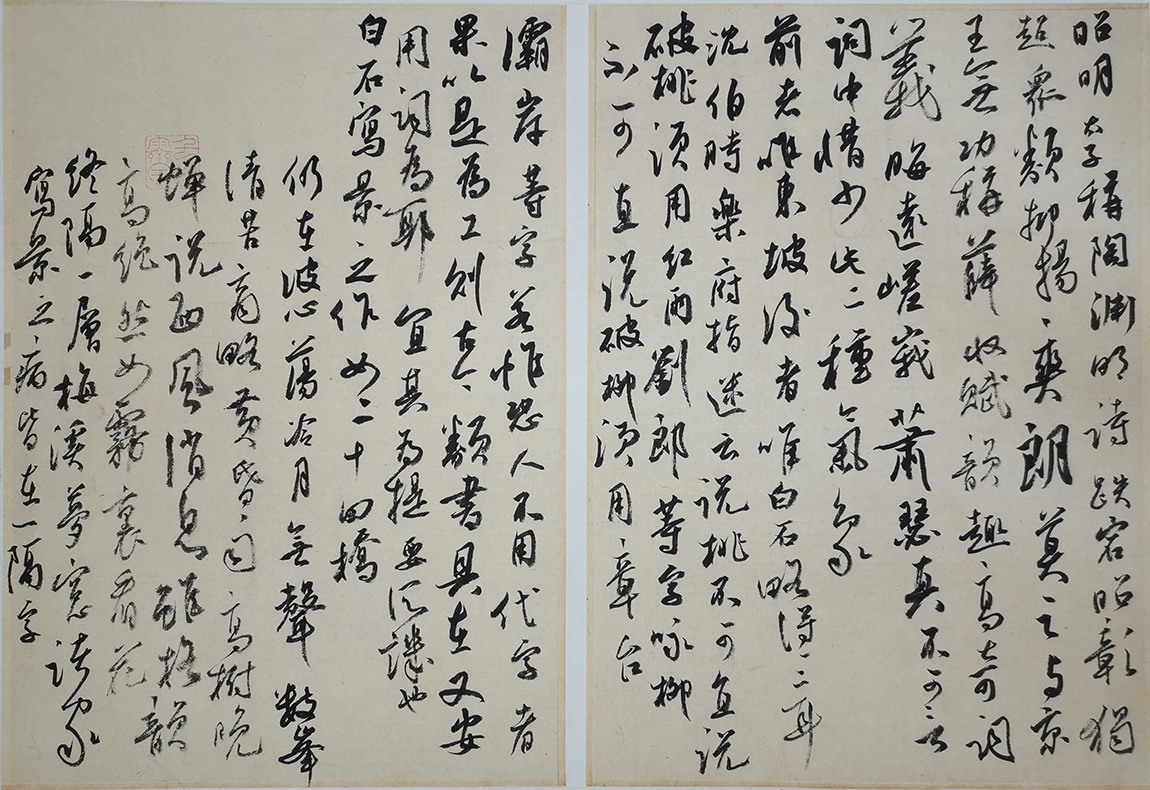 昭明太子稱陶淵明詩跌宕昭彰獨
超衆類抑揚〻爽朗莫之與京
王無功稱薛收賦韻趣高奇詞
義晦遠嵯峨蕭瑟真不可言
詞中惜少此二種氣象
前者惟東坡後者唯白石略得二耳
沈伯時樂府指迷云說桃不可直說
破桃須用紅雨劉郎等字咏柳
不可直說破柳須用章台
灞岸等字若惟恐人不用代字者
果以是爲工則古今類書具在又安
用詞爲耶宜其爲提要所譏也
白石寫景之作如二十四橋
仍在波心蕩冷月無聲數峯
清苦商略黃昏雨高樹晚
蟬說西風消息雖格韻
高絶然如霧裏看花
終隔一層梅溪夢窗諸家
寫景之病皆在一隔字